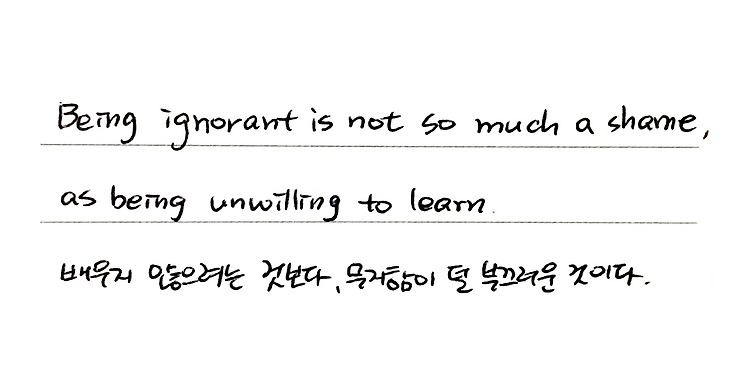 Being ignorant is not so much a shame,
as being unwilling to learn.
배우지 않으려는 것보다, 무지함이 덜 부끄러운 것이다.